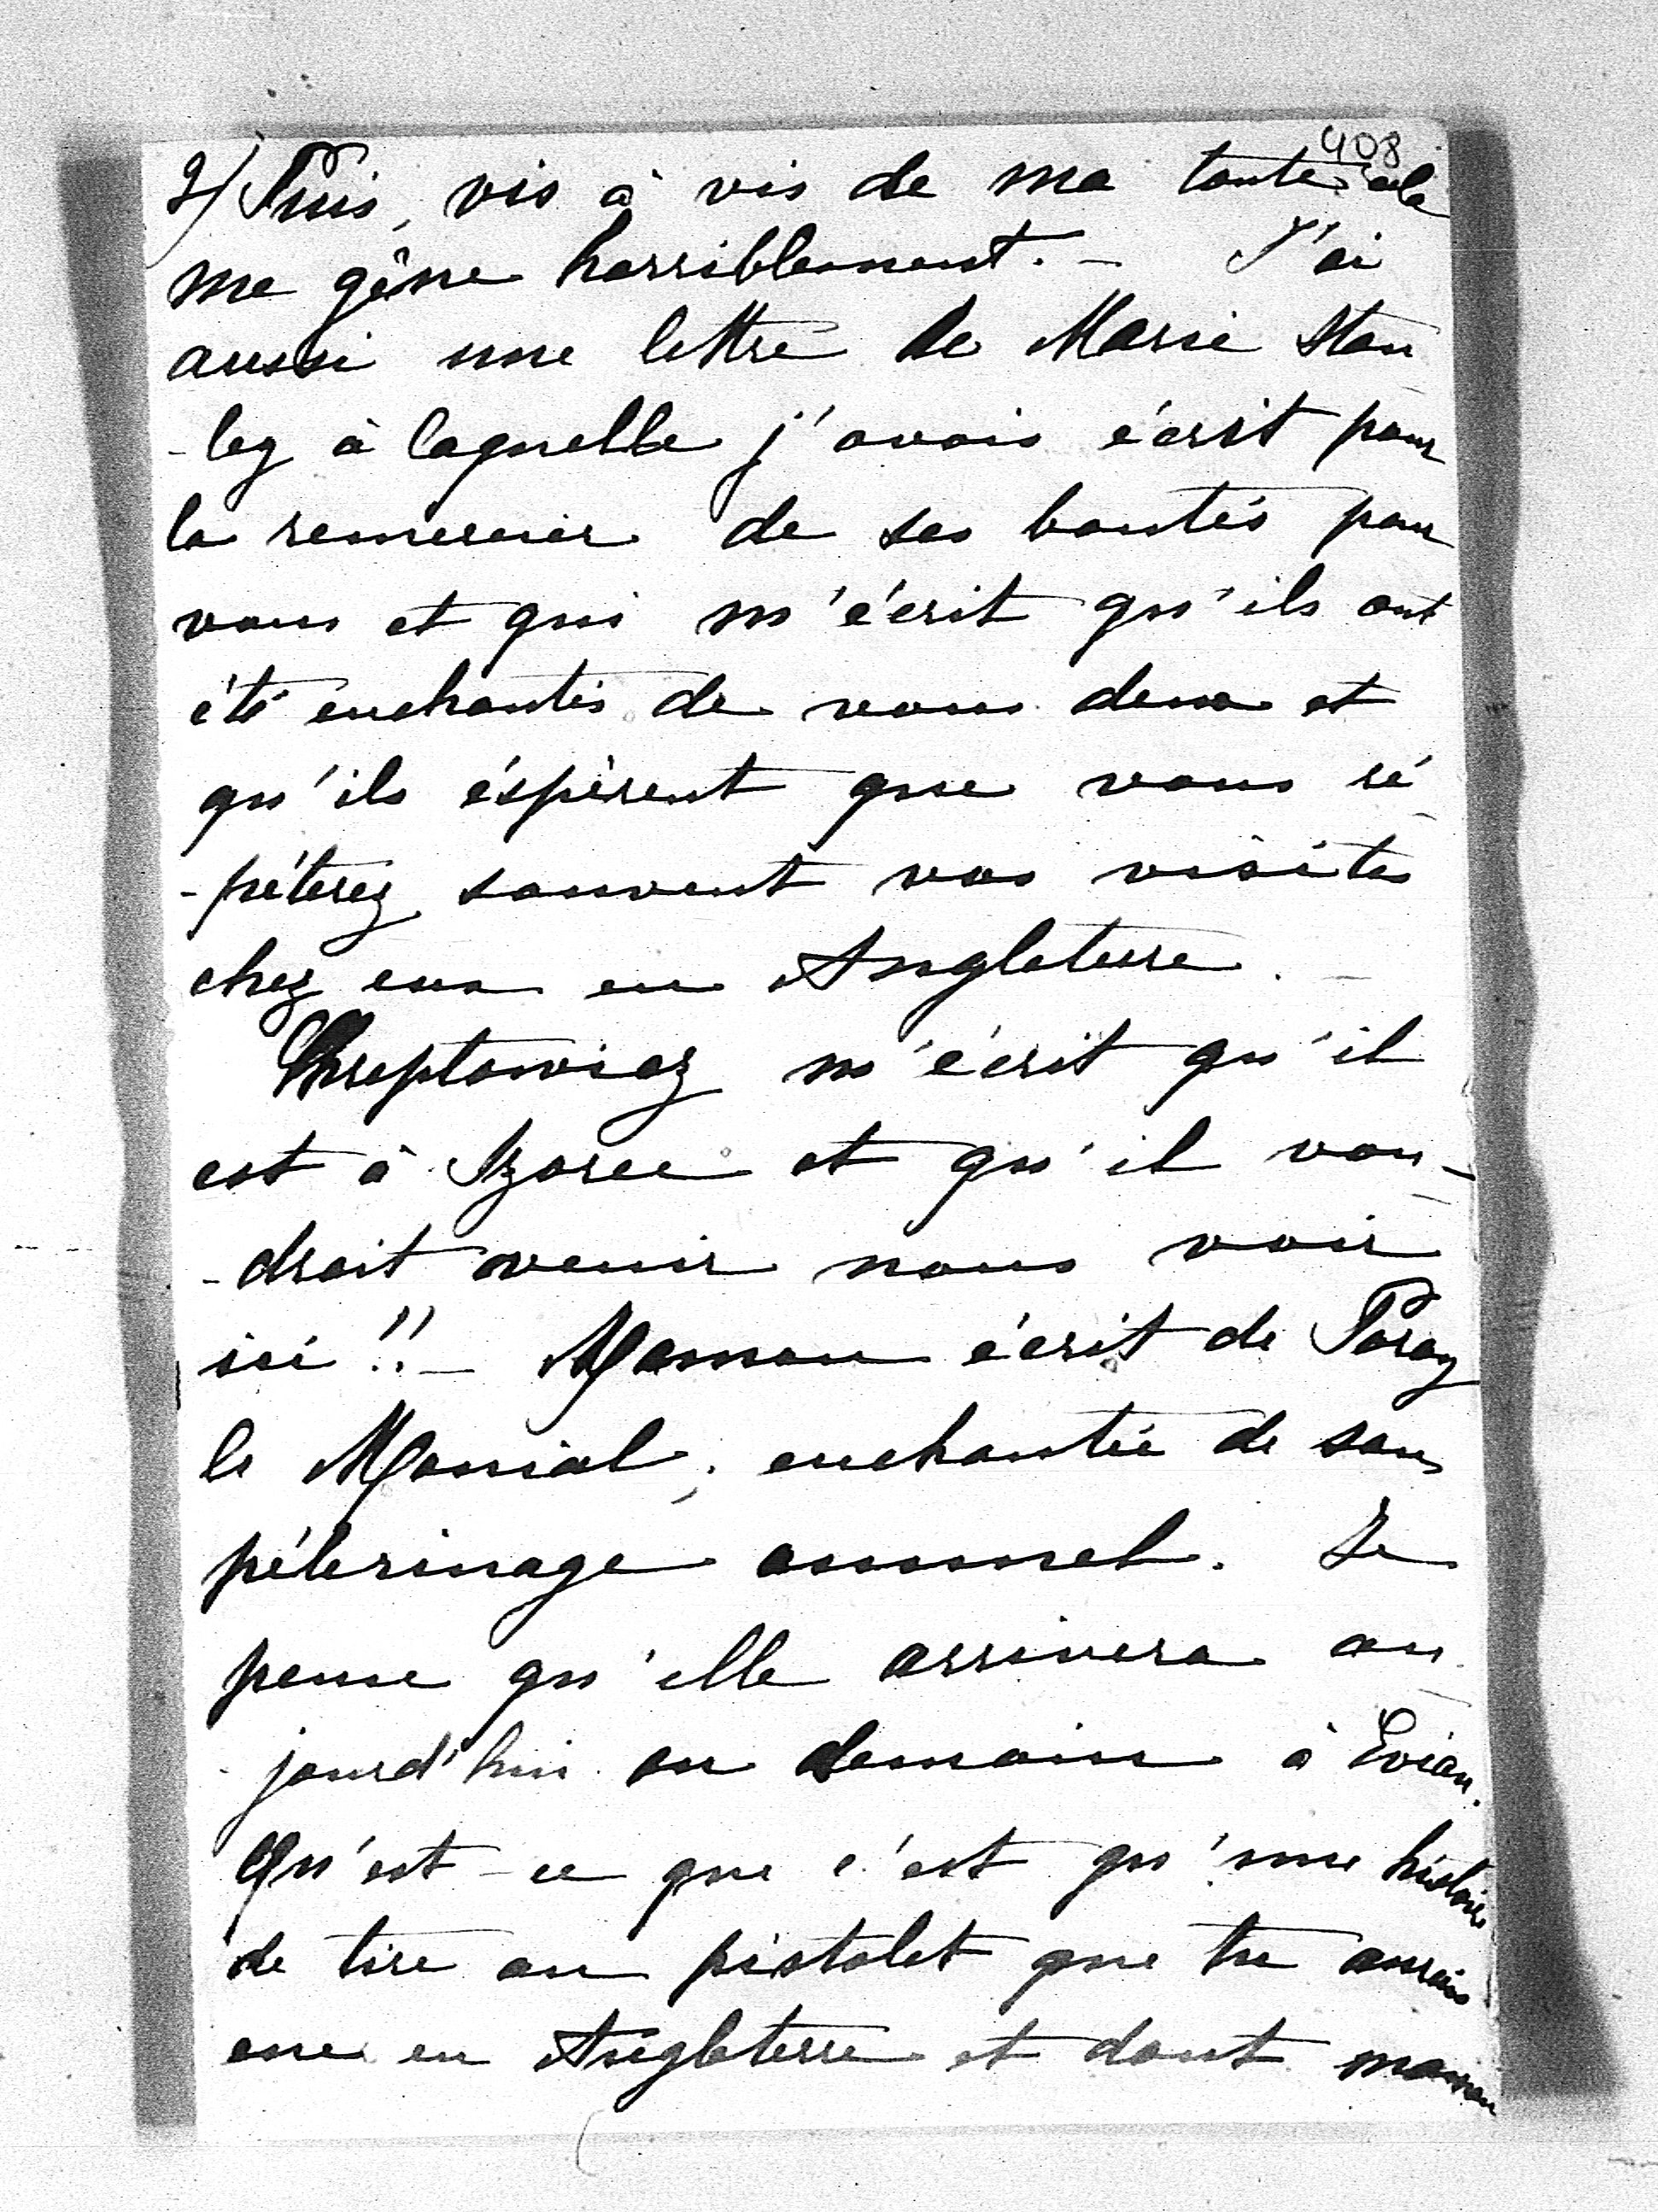 408
2/ Puis, vis à vis de ma tante cela
me gêne horriblement. – J'ai
aussi une lettre de Marie Stan
-ley à laquelle j'avais écrit pour
la remercier de ses bontés pour
vous et qui m'écrit qu'ils ont
été enchantés de vous deux et
qu'ils éspèrent que vous ré
-péterez souvent vos visites
chez eux en Angleterre. –
Chreptowicz m'écrit qu'il
est à Szorce et qu'il vou-
-drait venir nous voir
ici !! – Maman écrit de Paray
le Monial, enchantée de son
pélerinage annuel. Je
pense qu'elle arrivera au
jourd'hui ou demain à Evian.
Qu'est-ce que c'est qu'une histoire
de tire au pistolet que tu aurais
eue en Angleterre et dont maman